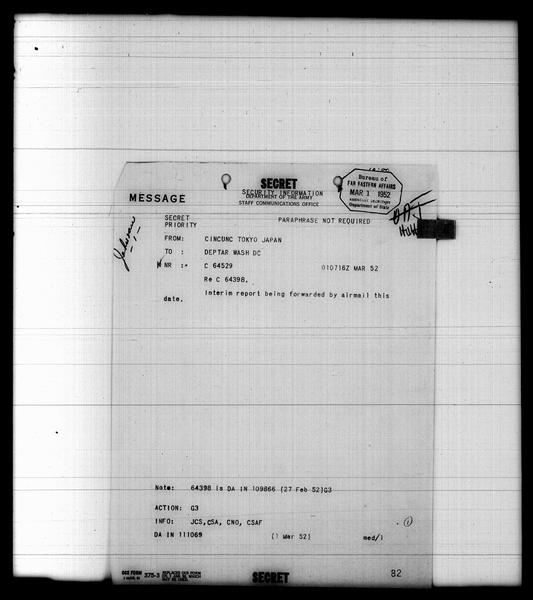 SECRET
SECURITY INFORMATION
DEPARTMENT OF THE ARMY
STAFF COMMUNICATIONS OFFICE
MESSAGE
Bureau of
FAR EASTERN AFFAIRS
MAR 1 1952
Department of State
SECRET
PRIORITY
PARAPHRASE NOT REQUIRED
FROM: CINCUNC TOKYO JAPAN
TO : DEPTAR WASH DC
NR : C 64529 010716Z MAR 52
Re C 64398.
Interim report being forwarded by airmail this
date.
Note: 64398 is DA IN 109866 (27 Feb 52)G3
ACTION: G3
INFO: JCS, CSA, CNO, CSAF
DA IN 111069 (1 Mar 52) med/1
OCS FORM 375-3 REPLACES OCS FORM
SECRET
82